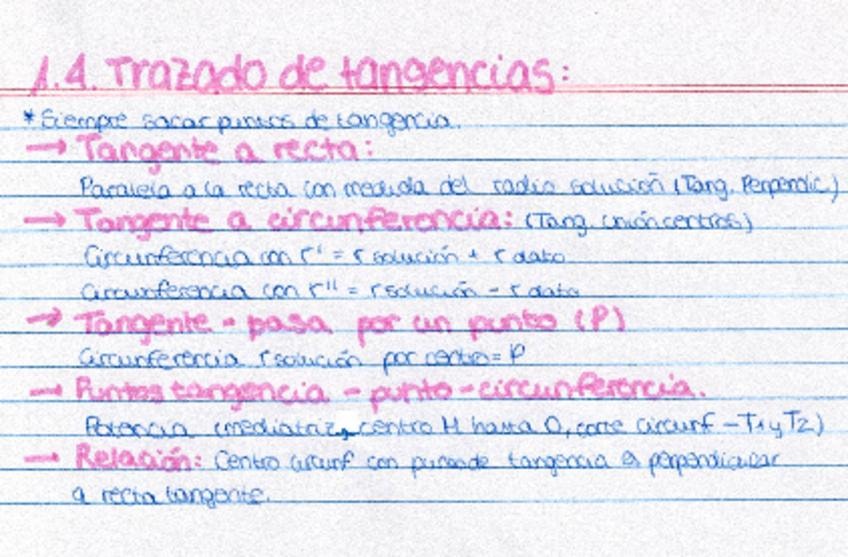 1.4. Trazado de tangencias:
* Siempre sacar puntos de tangencia.
→ Tangente a recta:
Paralela a la recta con medida del radio solución (Tang. Perpendic.)
→ Tangente a circunferencia: (Tang. unión centros)
Circunferencia con r' = r solución + r dato
Circunferencia con r'' = r solución - r dato
→ Tangente - pasa por un punto (P)
Circunferencia r solución por centro = P
→ Puntos tangencia - punto - circunferencia.
Potencia (mediatriz, centro M hasta O, corte circunf - T1 y T2)
→ Relación: Centro circunf con punto de tangencia es perpendicular
a recta tangente.